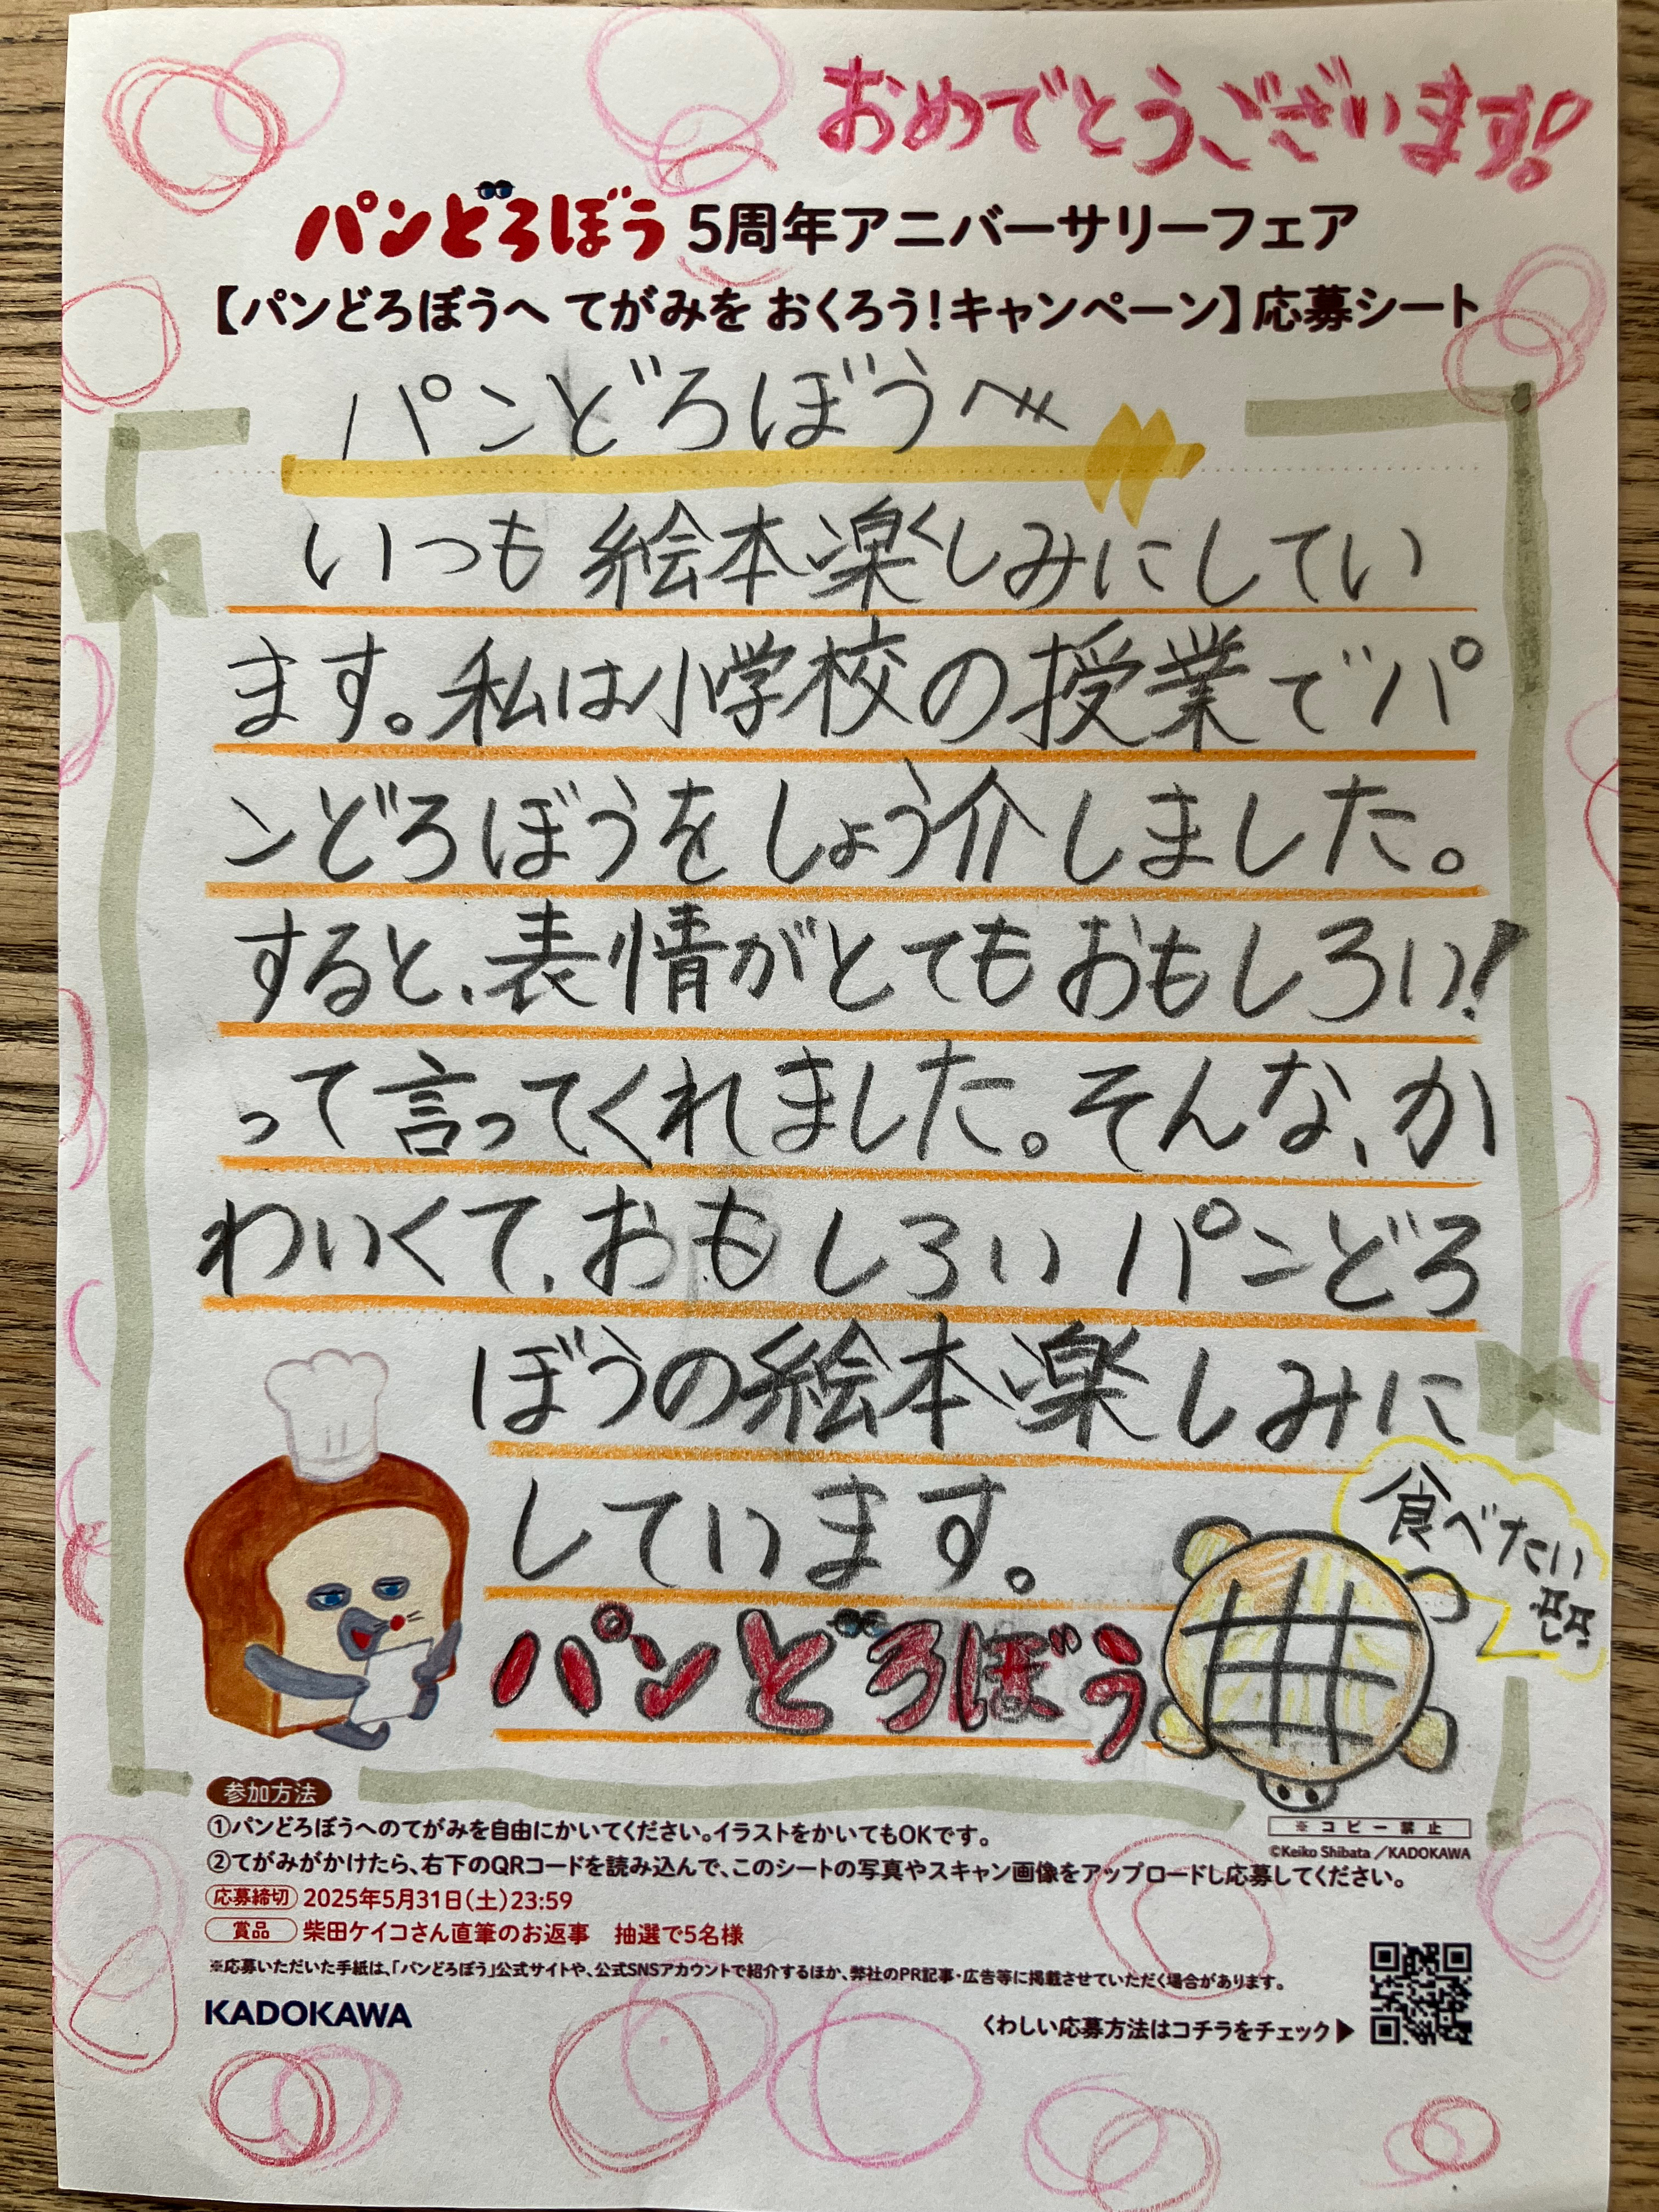 おめでとうございます!
パンどろぼう 5周年アニバーサリーフェア
【パンどろぼうへ てがみを おくろう!キャンペーン】応募シート
パンどろぼうへ
いつも絵本楽しみにしてい
ます。私は小学校の授業でパ
ンどろぼうをしょう介しました。
すると、表情がとてもおもしろい!
って言ってくれました。そんな、か
わいくて、おもしろいパンどろ
ぼうの絵本楽しみに
しています。
食べたい
パンどろぼう
参加方法
①パンどろぼうへのてがみを自由にかいてください。イラストをかいてもOKです。
※コピー禁止
©Keiko Shibata／KADOKAWA
②てがみがかけたら、右下のQRコードを読み込んで、このシートの写真やスキャン画像をアップロードし応募してください。
応募締切 2025年5月31日(土)23:59
賞品 柴田ケイコさん直筆のお返事 抽選で5名様
※応募いただいた手紙は、「パンどろぼう」公式サイトや、公式SNSアカウントで紹介するほか、弊社のPR記事・広告等に掲載させていただく場合があります。
KADOKAWA
くわしい応募方法はコチラをチェック▶